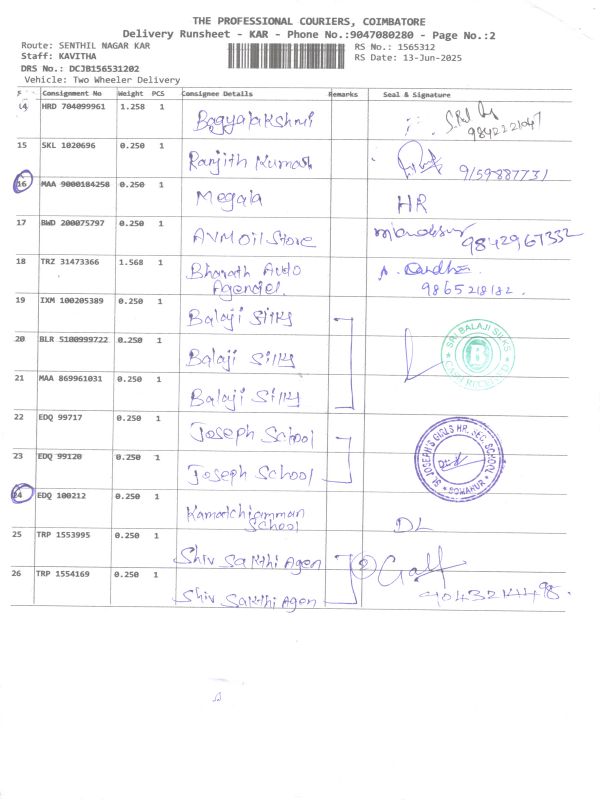 THE PROFESSIONAL COURIERS, COIMBATORE
Delivery Runsheet - KAR - Phone No.:9047080280 - Page No.:2
Route: SENTHIL NAGAR KAR RS No.: 1565312
Staff: KAVITHA RS Date: 13-Jun-2025
DRS No.: DCJB156531202
Vehicle: Two Wheeler Delivery
Consignment No Weight PCS Consignee Details Remarks Seal & Signature
14 HRD 704099961 1.258 1 Bagyalakshmi 9842221047
15 SKL 1020696 0.250 1 Ranjith Kumar 9159887731
16 MAA 9000184258 0.250 1 Megala HR
17 BWD 200075797 0.250 1 AVM Oil Store 9842967332
18 TRZ 31473366 1.568 1 Bharath Auto
Agencies. 9865218182.
19 IXM 100205389 0.250 1 Balaji Silks
20 BLR 5100999722 0.250 1 Balaji Silks
SRI BALAJI SILKS
B
21 MAA 869961031 0.250 1 Balaji Silks
22 EDQ 99717 0.250 1 Joseph School
ST. JOSEPH'S GIRLS HR. SEC. SCHOOL
23 EDQ 99120 0.250 1 Joseph School
24 EDQ 100212 0.250 1 Kamatchiamman
School DL
25 TRP 1553995 0.250 1 Shiv Sakthi Agen 2
26 TRP 1554169 0.250 1 Shiv Sakthi Agen